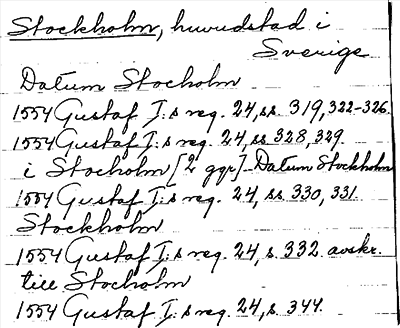 Stockholm, huvudstad i
Sverige
Datum Stocholm
1554 Gustaf I:s reg. 24, ss. 319, 322-326.
1554 Gustaf I:s reg. 24, ss 328, 329.
i Stocholm [2 ggr] - Datum Stockholm
1554 Gustaf I:s reg. 24, ss. 330, 331.
Stockholm
1554 Gustaf I:s reg. 24, s. 332. avskr.
till Stocholm
1554 Gustaf I:s reg. 24, s. 344.